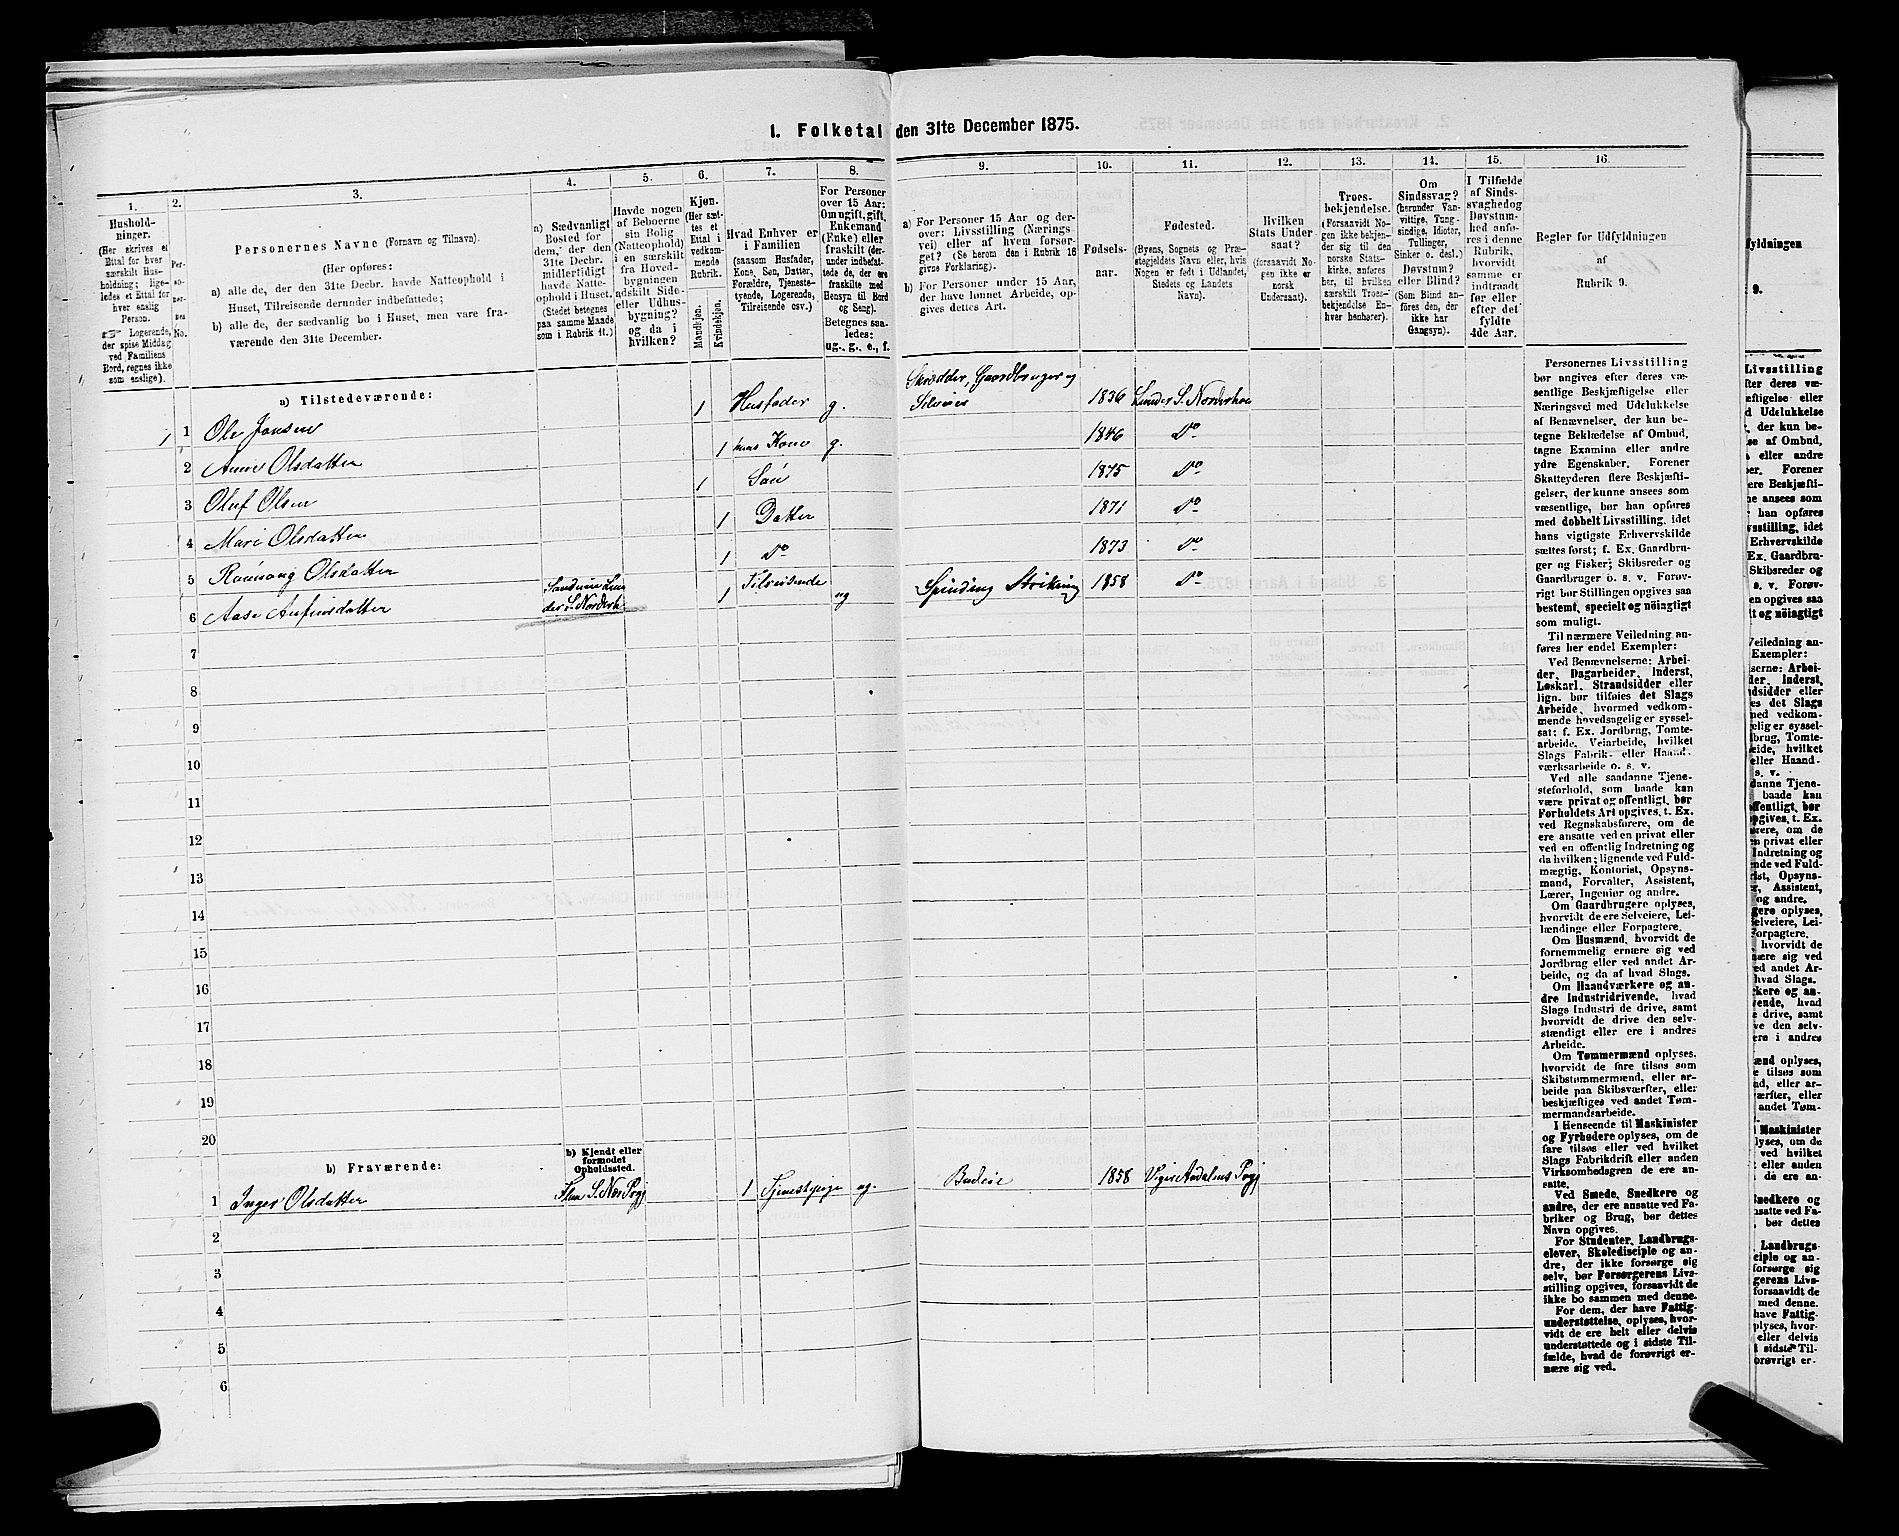 1. Folketal den 31te December 1875.
1.
Hushold-
ninger.
(Her skrives et
Ettal for hver
særskilt Hus-
holdning; lige-
ledes et Ettal for
hver enslig
Person.
☞ Logerende,
der spise Middag
ved Familiens
Bord, regnes ikke
som enslige).
2.
Per-
so-
ner-
nes
No.
3.
Personernes Navne (Fornavn og Tilnavn).
(Her opføres:
a) alle de, der den 31te Decbr. havde Natteophold i
Huset, Tilreisende derunder indbefattede;
b) alle de, der sædvanlig bo i Huset, men vare fra-
værende den 31te December.
4.
a) Sædvanligt
Bosted for
dem, der den
31te Decbr.
midlertidigt
havde Natte-
ophold i Huset.
(Stedet betegnes
paa samme Maade
som i Rubrik 11.)
5.
Havde nogen
af Beboerne
sin Bolig
(Natteophold)
i en særskilt
fra Hoved-
bygningen
adskilt Side-
eller Udhus-
bygning?
og da i
hvilken?
6.
Kjøn.
(Her sæt-
tes et
Ettal i
vedkom-
mende
Rubrik.
Mandkjøn.
Kvindekjøn.
7.
Hvad Enhver er
i Familien
(saasom Husfader,
Kone, Søn, Datter,
Forældre, Tjeneste-
tyende, Logerende,
Tilreisende osv.)
8.
For Personer
over 15 Aar:
Om ugift, gift,
Enkemand
(Enke) eller
fraskilt (der-
under indbefat-
tede de, der ere
fraskilte med
Hensyn til Bord
og Seng).
Betegnes saa-
ledes:
ug., g., e., f.
9.
a) For Personer 15 Aar og der-
over: Livsstilling (Nærings-
vei) eller af hvem forsør-
get? (Se herom den i Rubrik 16
givne Forklaring).
b) For Personer under 15 Aar,
der have lønnet Arbeide, op-
gives dettes Art.
10.
Fødsels-
aar.
11.
Fødested.
(Byens, Sognets og Præ-
stegjeldets Navn eller, hvis
Nogen er født i Udlandet,
Stedets og Landets
Navn).
12.
Hvilken
Stats Under-
saat?
(forsaavidt No-
gen ikke er
norsk
Undersaat).
13.
Troes-
bekjendelse.
(Forsaavidt No-
gen ikke bekjen-
der sig til den
norske Stats-
kirke, anføres
her, til hvilken
særskilt Troes-
bekjendelse En-
hver henhører).
14.
Om
Sindssvag?
(herunder Van-
vittige, Tung-
sindige, Idioter,
Tullinger,
Sinker o. desl.)
Døvstum?
eller Blind?
(Som Blind an-
føres den, der
ikke har
Gangsyn).
15.
I Tilfælde
af Sinds-
svaghed og
Døvstum-
hed anfø-
res i denne
Rubrik,
hvorvidt
samme er
indtraadt
før eller
efter det
fyldte
4de Aar.
16.
Regler for Udfyldningen
af
Rubrik 9.
a) Tilstedeværende:
1 1 Ole Jonsen 1 Husfader g. Skrædder, Gaardbruger og Selveier 1836 Lunder S. Norderhov
2 Anne Olsdatter 1 hans Kone g. 1846 Do
3 Oluf Olsen 1 Søn 1875 Do
4 Mari Olsdatter 1 Datter 1871 Do
5 Olsdatter 1 Do 1873 Do
6 Aase Anfinsdatter Lunder S. Norderh 1 Tilreisende ug Spinding Strikning 1858 Do
7
8
9
10
11
12
13
14
15
16
17
18
19
20
b) Fraværende:
b) Kjendt eller
formodet
Opholdssted.
1 Inger Olsdatter S. Nor Prgj 1 Tjenestepige ug. Budeie 1858 Aadalens Prgj
2
3
4
5
6
Personernes Livsstilling
bør angives efter deres væ-
sentlige Beskjæftigelse eller
Næringsvei med Udelukkelse
af Benævnelser, der kun be-
tegne Beklædelse af Ombud,
tagne Examina eller andre
ydre Egenskaber. Forener
Skatteyderen flere Beskjæfti-
gelser, der kunne ansees som
væsentlige, bør han opføres
med dobbelt Livsstilling, idet
hans vigtigste Erhvervskilde
sættes først; f. Ex. Gaardbru-
ger og Fisker; Skibsreder og
Gaardbruger o. s. v. Forøv-
rigt bør Stillingen opgives saa
bestemt, specielt og nøiagtigt
som muligt.
Til nærmere Veiledning an-
føres her endel Exempler:
Ved Benævnelserne: Arbei-
der, Dagarbeider, Inderst,
Løskarl, Strandsidder eller
lign. bør tilføies det Slags
Arbeide, hvormed vedkom-
mende hovedsagelig er syssel-
sat; f. Ex. Jordbrug, Tomte-
arbeide, Veiarbeide, hvilket
Slags Fabrik- eller Haand-
værksarbeide o. s. v.
Ved alle saadanne Tjene-
steforhold, som baade kan
være privat og offentligt, bør
Forholdets Art opgives, t. Ex.
ved Regnskabsførere, om de
ere ansatte ved en privat eller
ved en offentlig Indretning og
da hvilken; lignende ved Fuld-
mægtig, Kontorist, Opsyns-
mand, Forvalter, Assistent,
Lærer, Ingeniør og andre.
Om Gaardbrugere oplyses,
hvorvidt de ere Selveiere, Lei-
lændinge eller Forpagtere.
Om Husmænd, hvorvidt de
fornemmelig ernære sig ved
Jordbrug eller ved andet Ar-
beide, og da af hvad Slags.
Om Haandværkere og an-
dre Industridrivende, hvad
Slags Industri de drive, samt
hvorvidt de drive den selv-
stændigt eller ere i andres
Arbeide.
Om Tømmermænd oplyses,
hvorvidt de fare tilsøs som
Skibstømmermænd, eller ar-
beide paa Skibsværfter, eller
beskjæftiges ved andet Tøm-
mermandsarbeide.
I Henseende til Maskinister
og Fyrbødere oplyses, om de
fare tilsøs eller ved hvilket
Slags Fabrikdrift eller anden
Virksomhedsgren de ere an-
satte.
Ved Smede, Snedkere og
andre, der ere ansatte ved Fa-
briker og Brug, bør dettes
Navn opgives.
For Studenter, Landbrugs-
elever, Skoledisciple og an-
dre, der ikke forsørge sig
selv, bør Forsørgerens Livs-
stilling opgives, forsaavidt de
ikke bo sammen med denne.
For dem, der have Fattig-
understøttelse, oplyses, hvor-
vidt de ere helt eller delvis
understøttede og i sidste Til-
fælde, hvad de forøvrigt er-
nære sig ved.